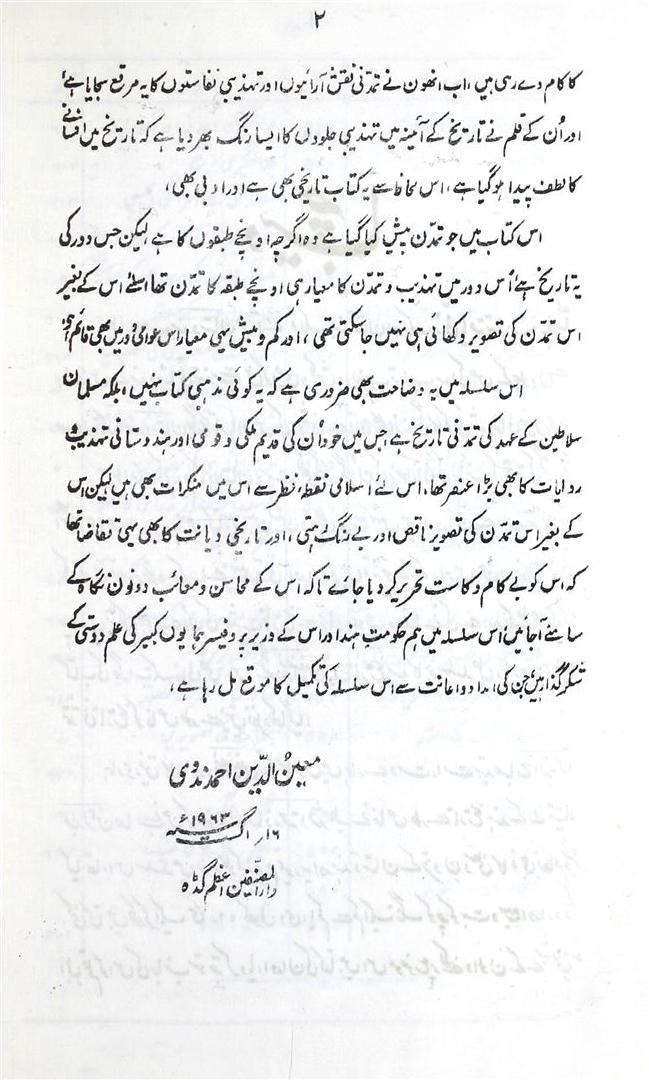 ۲
کا کام دے رہی ہیں، اب انھون نے تمدنی نقش آرائیوں اور تہذیبی نفاستوں کا یہ مرقع سجایا ہے،
اور اُن کے قلم نے تاریخ کے آئینہ میں تہذیبی جلووں کا ایسا رنگ بھر دیا ہے کہ تاریخ میں افسانے
کا لطف پیدا ہو گیا ہے، اس لحاظ سے یہ کتاب تاریخی بھی ہے اور ادبی بھی،
اس کتاب میں جو تمدّن پیش کیا گیا ہے وہ اگرچہ اونچے طبقوں کا ہے لیکن جس دور کی
یہ تاریخ ہے اُس دور میں تہذیب و تمدّن کا معیار ہی اونچے طبقہ کا تمدّن تھا اسلئے اس کے بغیر
اس تمدّن کی تصویر دکھائی ہی نہیں جا سکتی تھی، اور کم و بیش یہی معیار اس عوامی دور میں بھی قائم ہے،
اس سلسلہ میں یہ وضاحت بھی ضروری ہے کہ یہ کوئی مذہبی کتاب نہیں، بلکہ مسلمان
سلاطین کے عہد کی تمدّنی تاریخ ہے جس میں خود اُن کی قدیم ملکی و قومی اور ہندوستانی تہذیب و
روایات کا بھی بڑا عنصر تھا، اس لئے اسلامی نقطۂ نظر سے اس میں منکرات بھی ہیں لیکن اس
کے بغیر اس تمدّن کی تصویر ناقص اور بے رنگ رہتی، اور تاریخی دیانت کا بھی یہی تقاضا تھا
کہ اس کو بے کام و کاست تحریر کر دیا جائے تاکہ اس کے محاسن و معائب دونون نگاہ کے
سامنے آجائیں، اس سلسلہ میں ہم حکومتِ ہند اور اس کے وزیر پروفیسر ہمایوں کبیر کی علم دوستی کے
شکر گذار ہیں، جن کی امداد و اعانت سے اس سلسلہ کی تکمیل کا موقع مل رہا ہے،
معین الدّین احمد ندوی
۱۶ر اگست ۱۹۶۳ء
دار المصنّفین اعظم گڈہ